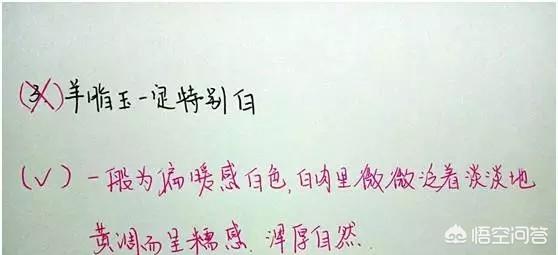 (3.)羊脂玉一定特别白
(✓)一般为偏暖感白色,白肉里微微泛着淡淡地
黄调而呈糯感.浑厚自然.
悟空问答